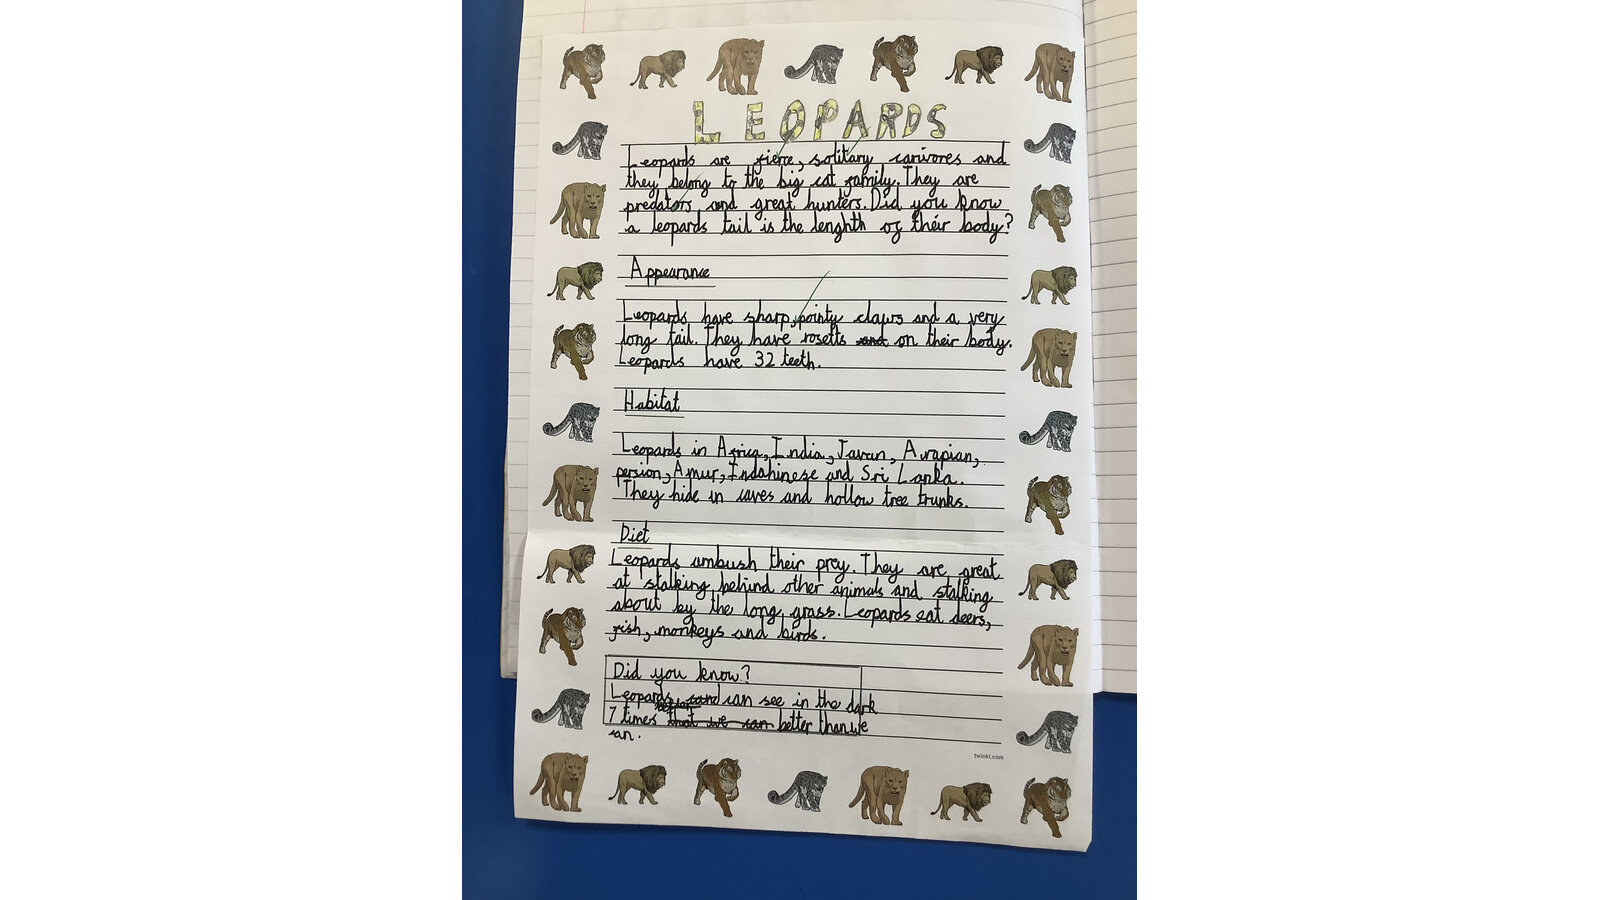 LEOPARDS
Leopards are fierce, solitary carivores and
they belong to the big cat family. They are
predators and great hunters. Did you know
a leopards tail is the lenghth of their body?
Appearance
Leopards have sharp, pointy claws and a very
long tail. They have rosetts and on their body.
Leopards have 32 teeth.
Habitat
Leopards in Africa, India, Javan, Arapian,
persion, Amur, Indahinese and Sri Lanka.
They hide in caves and hollow tree trunks.
Diet
Leopards ambush their prey. They are great
at stalking behind other animals and stalking
about by the long grass. Leopards eat deers,
fish, monkeys and birds.
Did you know?
Leopards can see in the dark
7 times that we can better than we
can.
twinkl.com